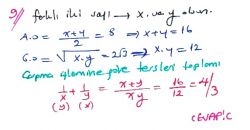 9) farklı iki sayı → x ve y olsun.
A.O = x+y/2 = 8 ⇒ x+y = 16
G.O = √x.y = 2√3 ⇒ x.y = 12
Çarpma işlemine göre tersler toplamı
1/x + 1/y = x+y/xy = 16/12 = 4/3
(y) (x)
CEVAP: C